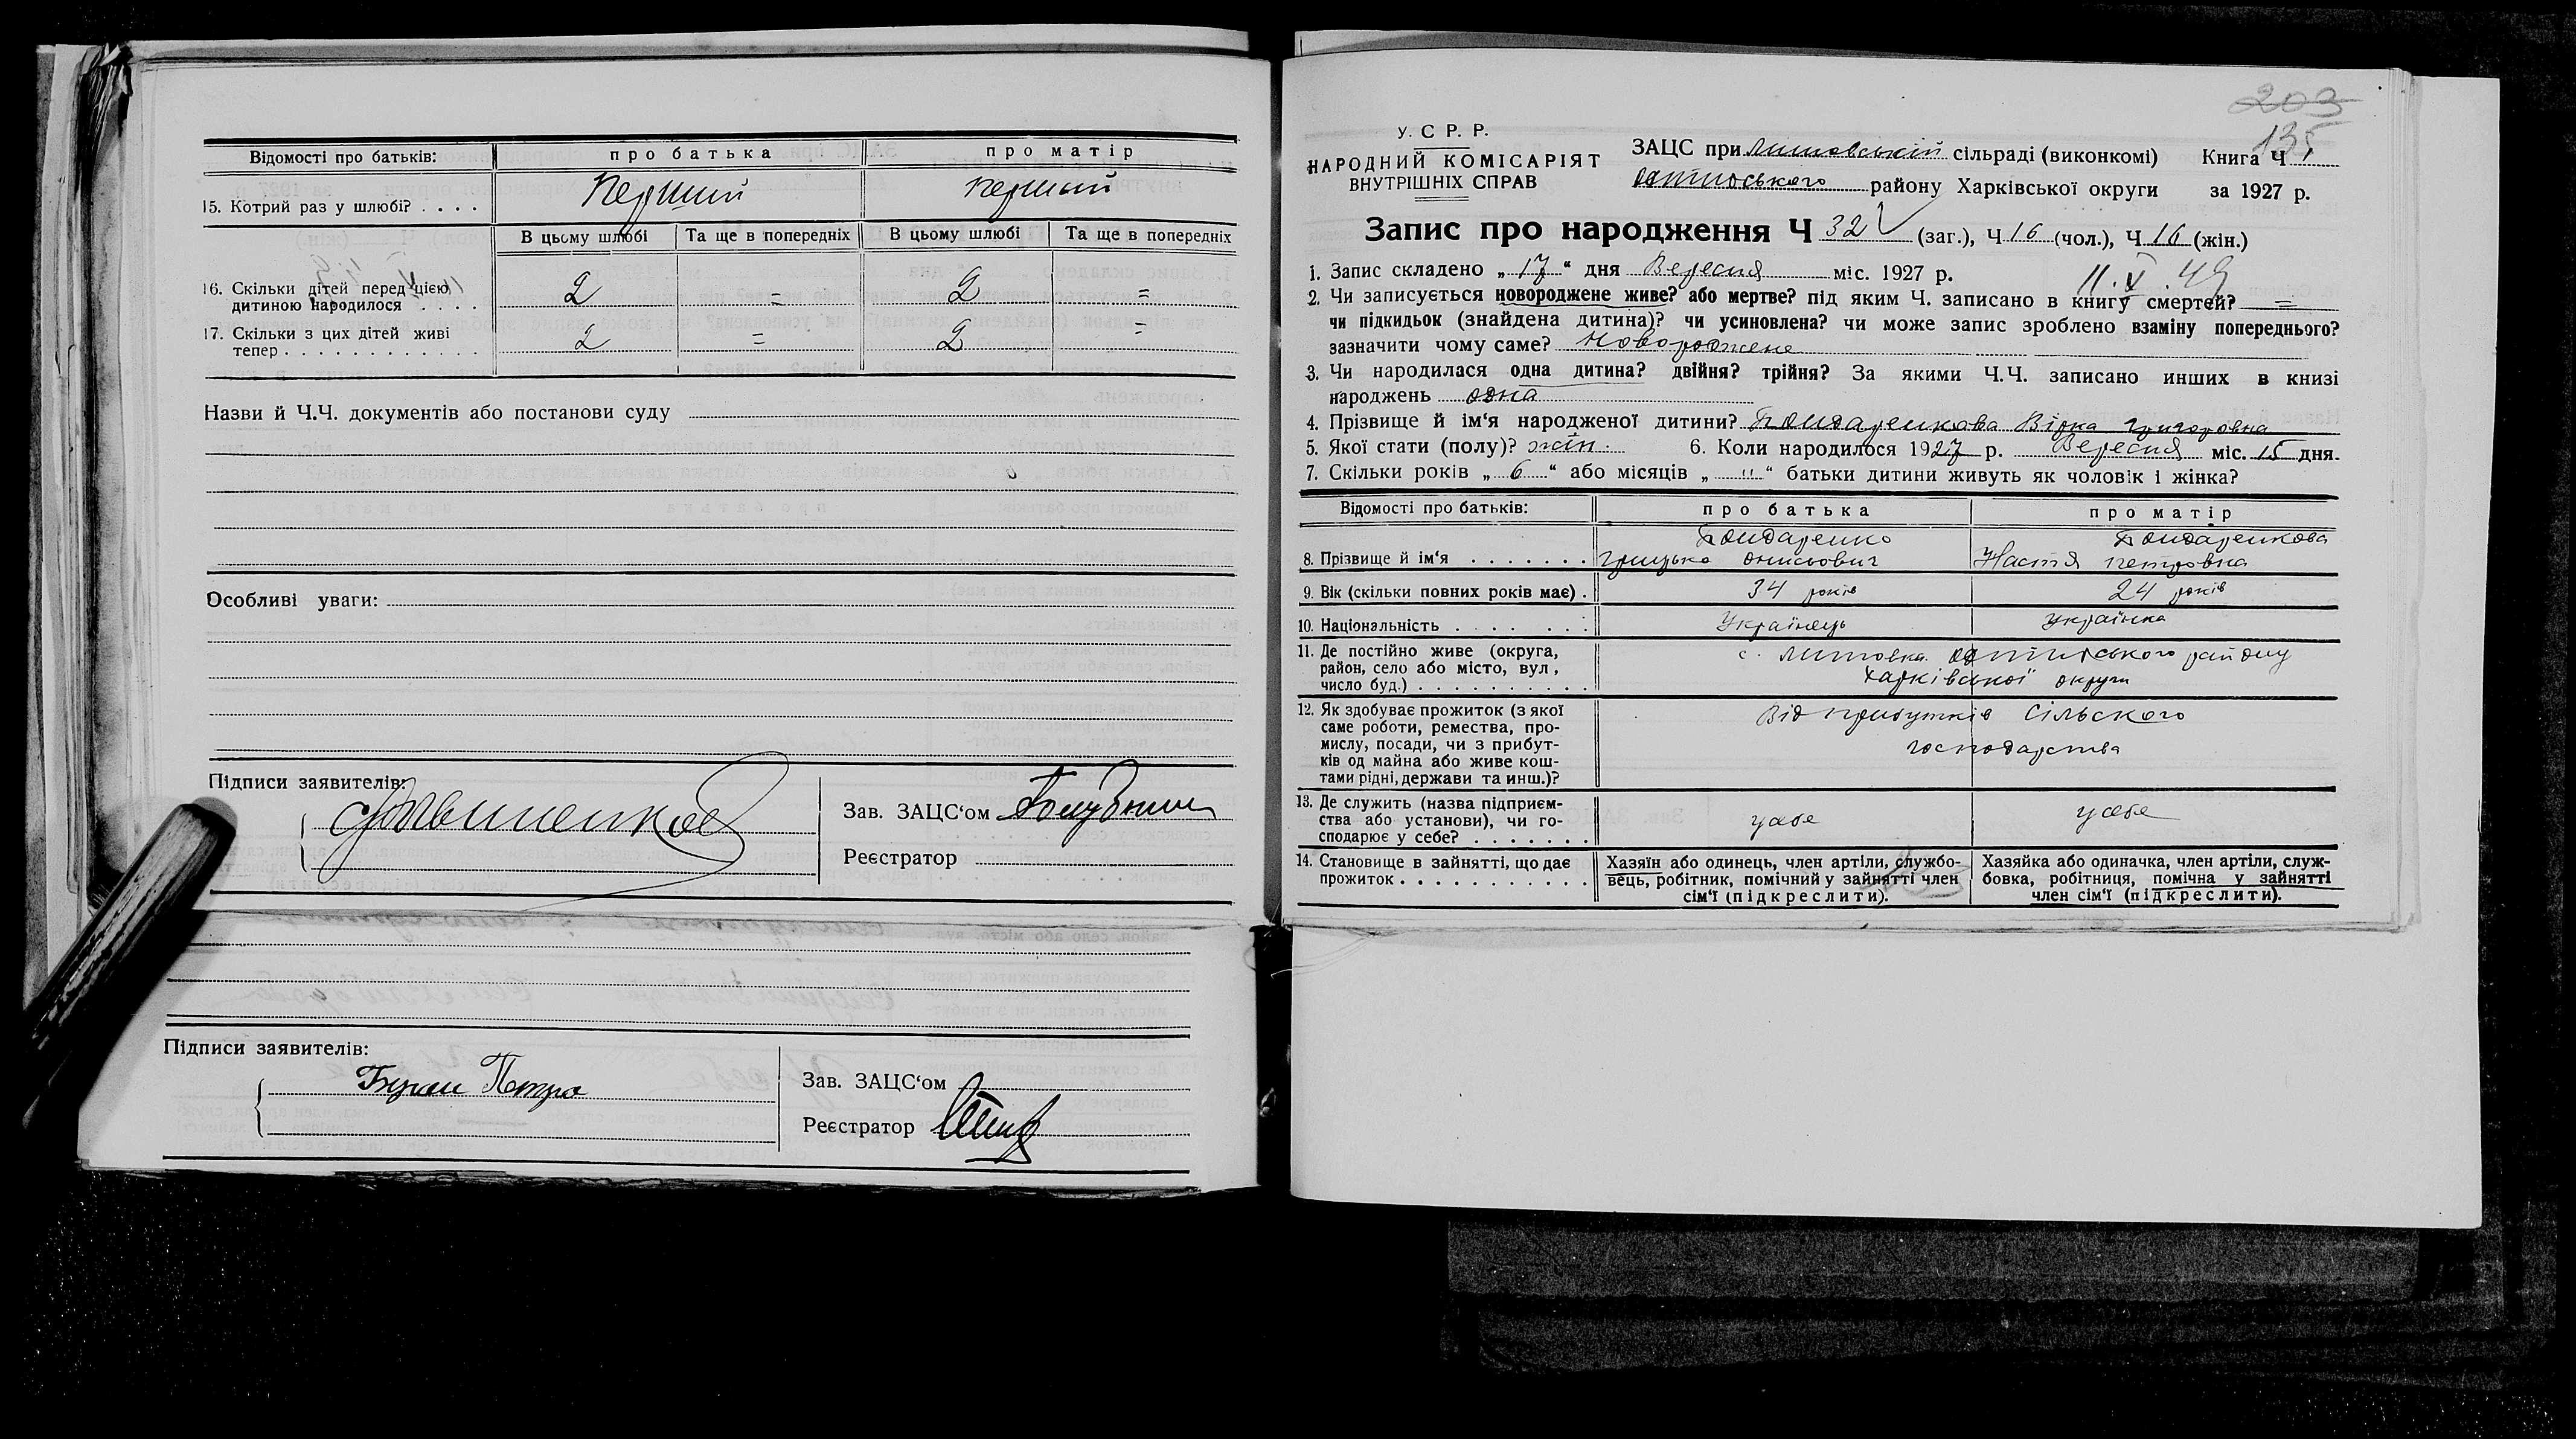 Відомості про батьків: про батька про матір
15. Котрий раз у шлюбі? . . . . Перший Перший
В цьому шлюбі Та ще в попередніх В цьому шлюбі Та ще в попередніх
16. Скільки дітей перед цією
дитиною народилося . . . . 2 = 2 =
17. Скільки з цих дітей живі
тепер . . . . . . . . . . . . . 2 = 2 =
Назви й Ч.Ч. документів або постанови суду
Особливі уваги:
Підписи заявителів:
Зав. ЗАЦС‘ом
Реєстратор
Підписи заявителів:
Петро
Зав. ЗАЦС‘ом
Реєстратор
203
135
У. С Р. Р.
НАРОДНИЙ КОМІСАРІЯТ
ВНУТРІШНІХ СПРАВ
ЗАЦС при Литовській сільраді (виконкомі) Книга Ч 1
району Харківської округи за 1927 р.
Запис про народження Ч 32 (заг.), Ч 16 (чол.), Ч 16 (жін.)
1. Запис складено „ 17 “ дня Вересня міс. 1927 р. 11. V. 49
2. Чи записується новороджене живе? або мертве? під яким Ч. записано в книгу смертей? =
чи підкидьок (знайдена дитина)? чи усиновлена? чи може запис зроблено взаміну попереднього?
зазначити чому саме? Новороджене
3. Чи народилася одна дитина? двійня? трійня? За якими Ч.Ч. записано инших в книзі
народжень одна
4. Прізвище й ім‘я народженої дитини? Бондаренкова Вірка Григоровна
5. Якої стати (полу)? жін. 6. Коли народилося 1927 р. Вересня міс. 15 дня.
7. Скільки років „ 6 “ або місяців „ " “ батьки дитини живуть як чоловік і жінка?
Відомості про батьків: про батька про матір
Бондаренко Бондаренкова
8. Прізвище й ім‘я . . . . . . . Грицько Онисьович Настя Петровна
9. Вік (скільки повних років має) . 34 років 24 років
10. Національність . . . . . . . Українець Українка
11. Де постійно живе (округа,
район, село або місто, вул,
число буд.) . . . . . . . . . .
с. Литовка району
Харківської округи
12. Як здобуває прожиток (з якої
саме роботи, ремества, про-
мислу, посади, чи з прибут-
ків од майна або живе кош-
тами рідні, держави та инш.)?
Від прибутків сільского
господарства
13. Де служить (назва підприєм-
ства або установи), чи го-
сподарює у себе? . . . . . . . у себе у себе
14. Становище в зайнятті, що дає
прожиток . . . . . . . . . . . .
Хазяїн або одинець, член артіли, службо-
вець, робітник, помічний у зайнятті член
сім‘ї (підкреслити).
Хазяйка або одиначка, член артіли, служ-
бовка, робітниця, помічна у зайнятті
член сім‘ї (підкреслити).